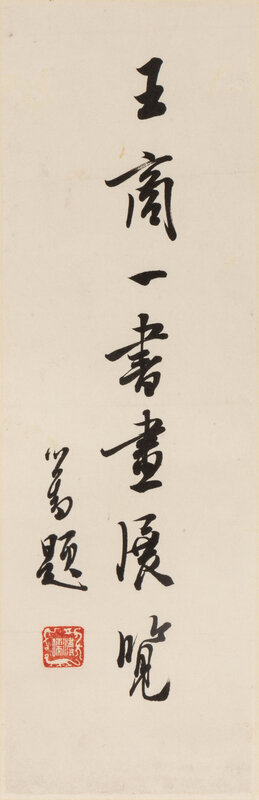 王商一書畫展覽
心畬題